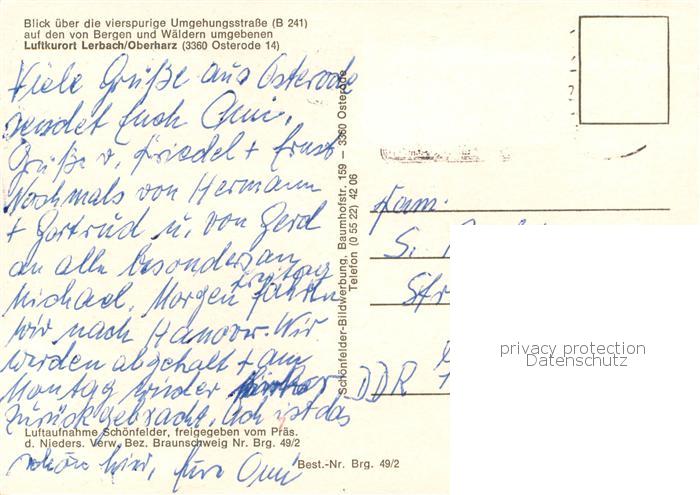 Blick über die vierspurige Umgehungsstraße (B 241)
auf den von Bergen und Wäldern umgebenen
Luftkurort Lerbach/Oberharz (3360 Osterode 14)
Viele Grüße aus Osterode
sendet Euch Omi.
Grüße v. Friedel + Ernst
Nochmals von Hermann
+ Gertrud u. von Gerd
an alle besonders an
Michael. Morgen Freitag fahren
wir nach Hanover. Wir
werden abgehalt + am
Montag wieder
zurückgebracht. Ach ist das
schön hier, Eure Omi
Luftaufnahme Schönfelder, freigegeben vom Präs.
d. Nieders. Verw. Bez. Braunschweig Nr. Brg. 49/2
Best.-Nr. Brg. 49/2
Schönfelder-Bildwerbung, Baumhofstr. 159 — 3360 Osterode
Telefon (0 55 22) 42 06
Fam.
S.
Str
DDR
privacy protection
Datenschutz